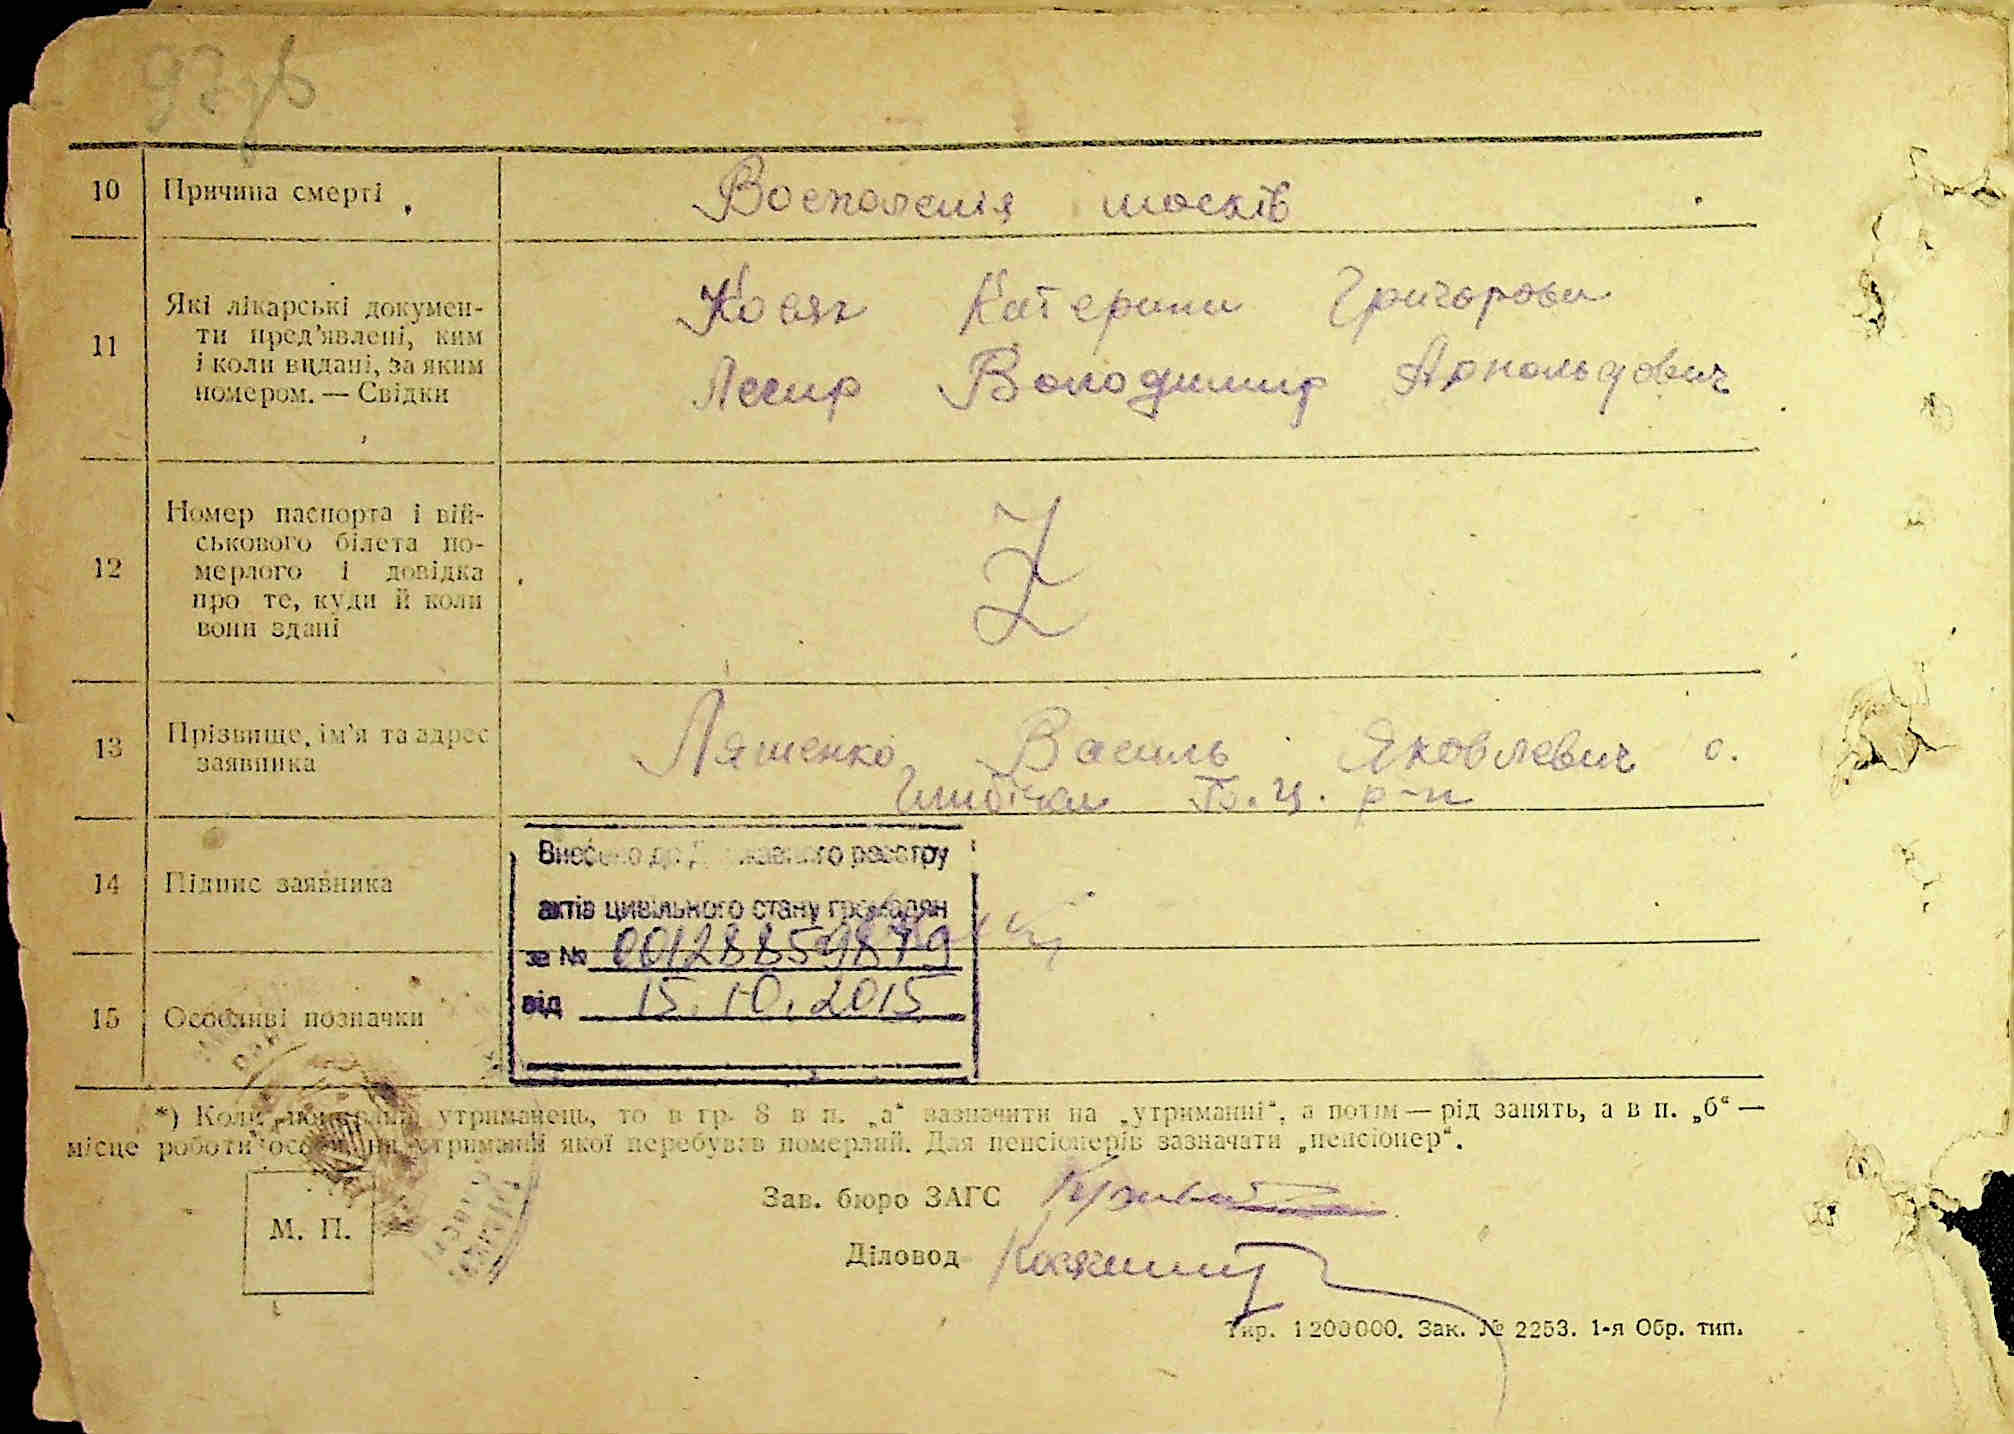 10 Причина смерті Воспаления москів
11 Які лікарські докумен-
ти пред'явлені, ким
і коли видані, за яким
номером. — Свідки
Косяк Катерини Григорови
Лесир Володимир Арнольдович
12 Номер паспорта і вій-
ськового білета по-
мерлого і довідка
про те, куди й коли
вони здані
Z
13 Прізвище, ім'я та адрес
заявника
Ляшенко Василь Яковлевич с.
р-н
14 Підпис заявника
Внесено до Державного реєстру
актів цивільного стану громадян
за № 00128859879
від 15.10.2015
15 Особливі позначки
*) Коли померлий утриманець, то в гр. 8 в п. „а“ зазначити на „утриманні“, а потім — рід занять, а в п. „б“ —
місце роботи особи, на утриманні якої перебував померлий. Для пенсіонерів зазначати „пенсіонер“.
М. П.
Зав. бюро ЗАГС
Діловод
Тир. 1200000. Зак. № 2253. 1-я Обр. тип.